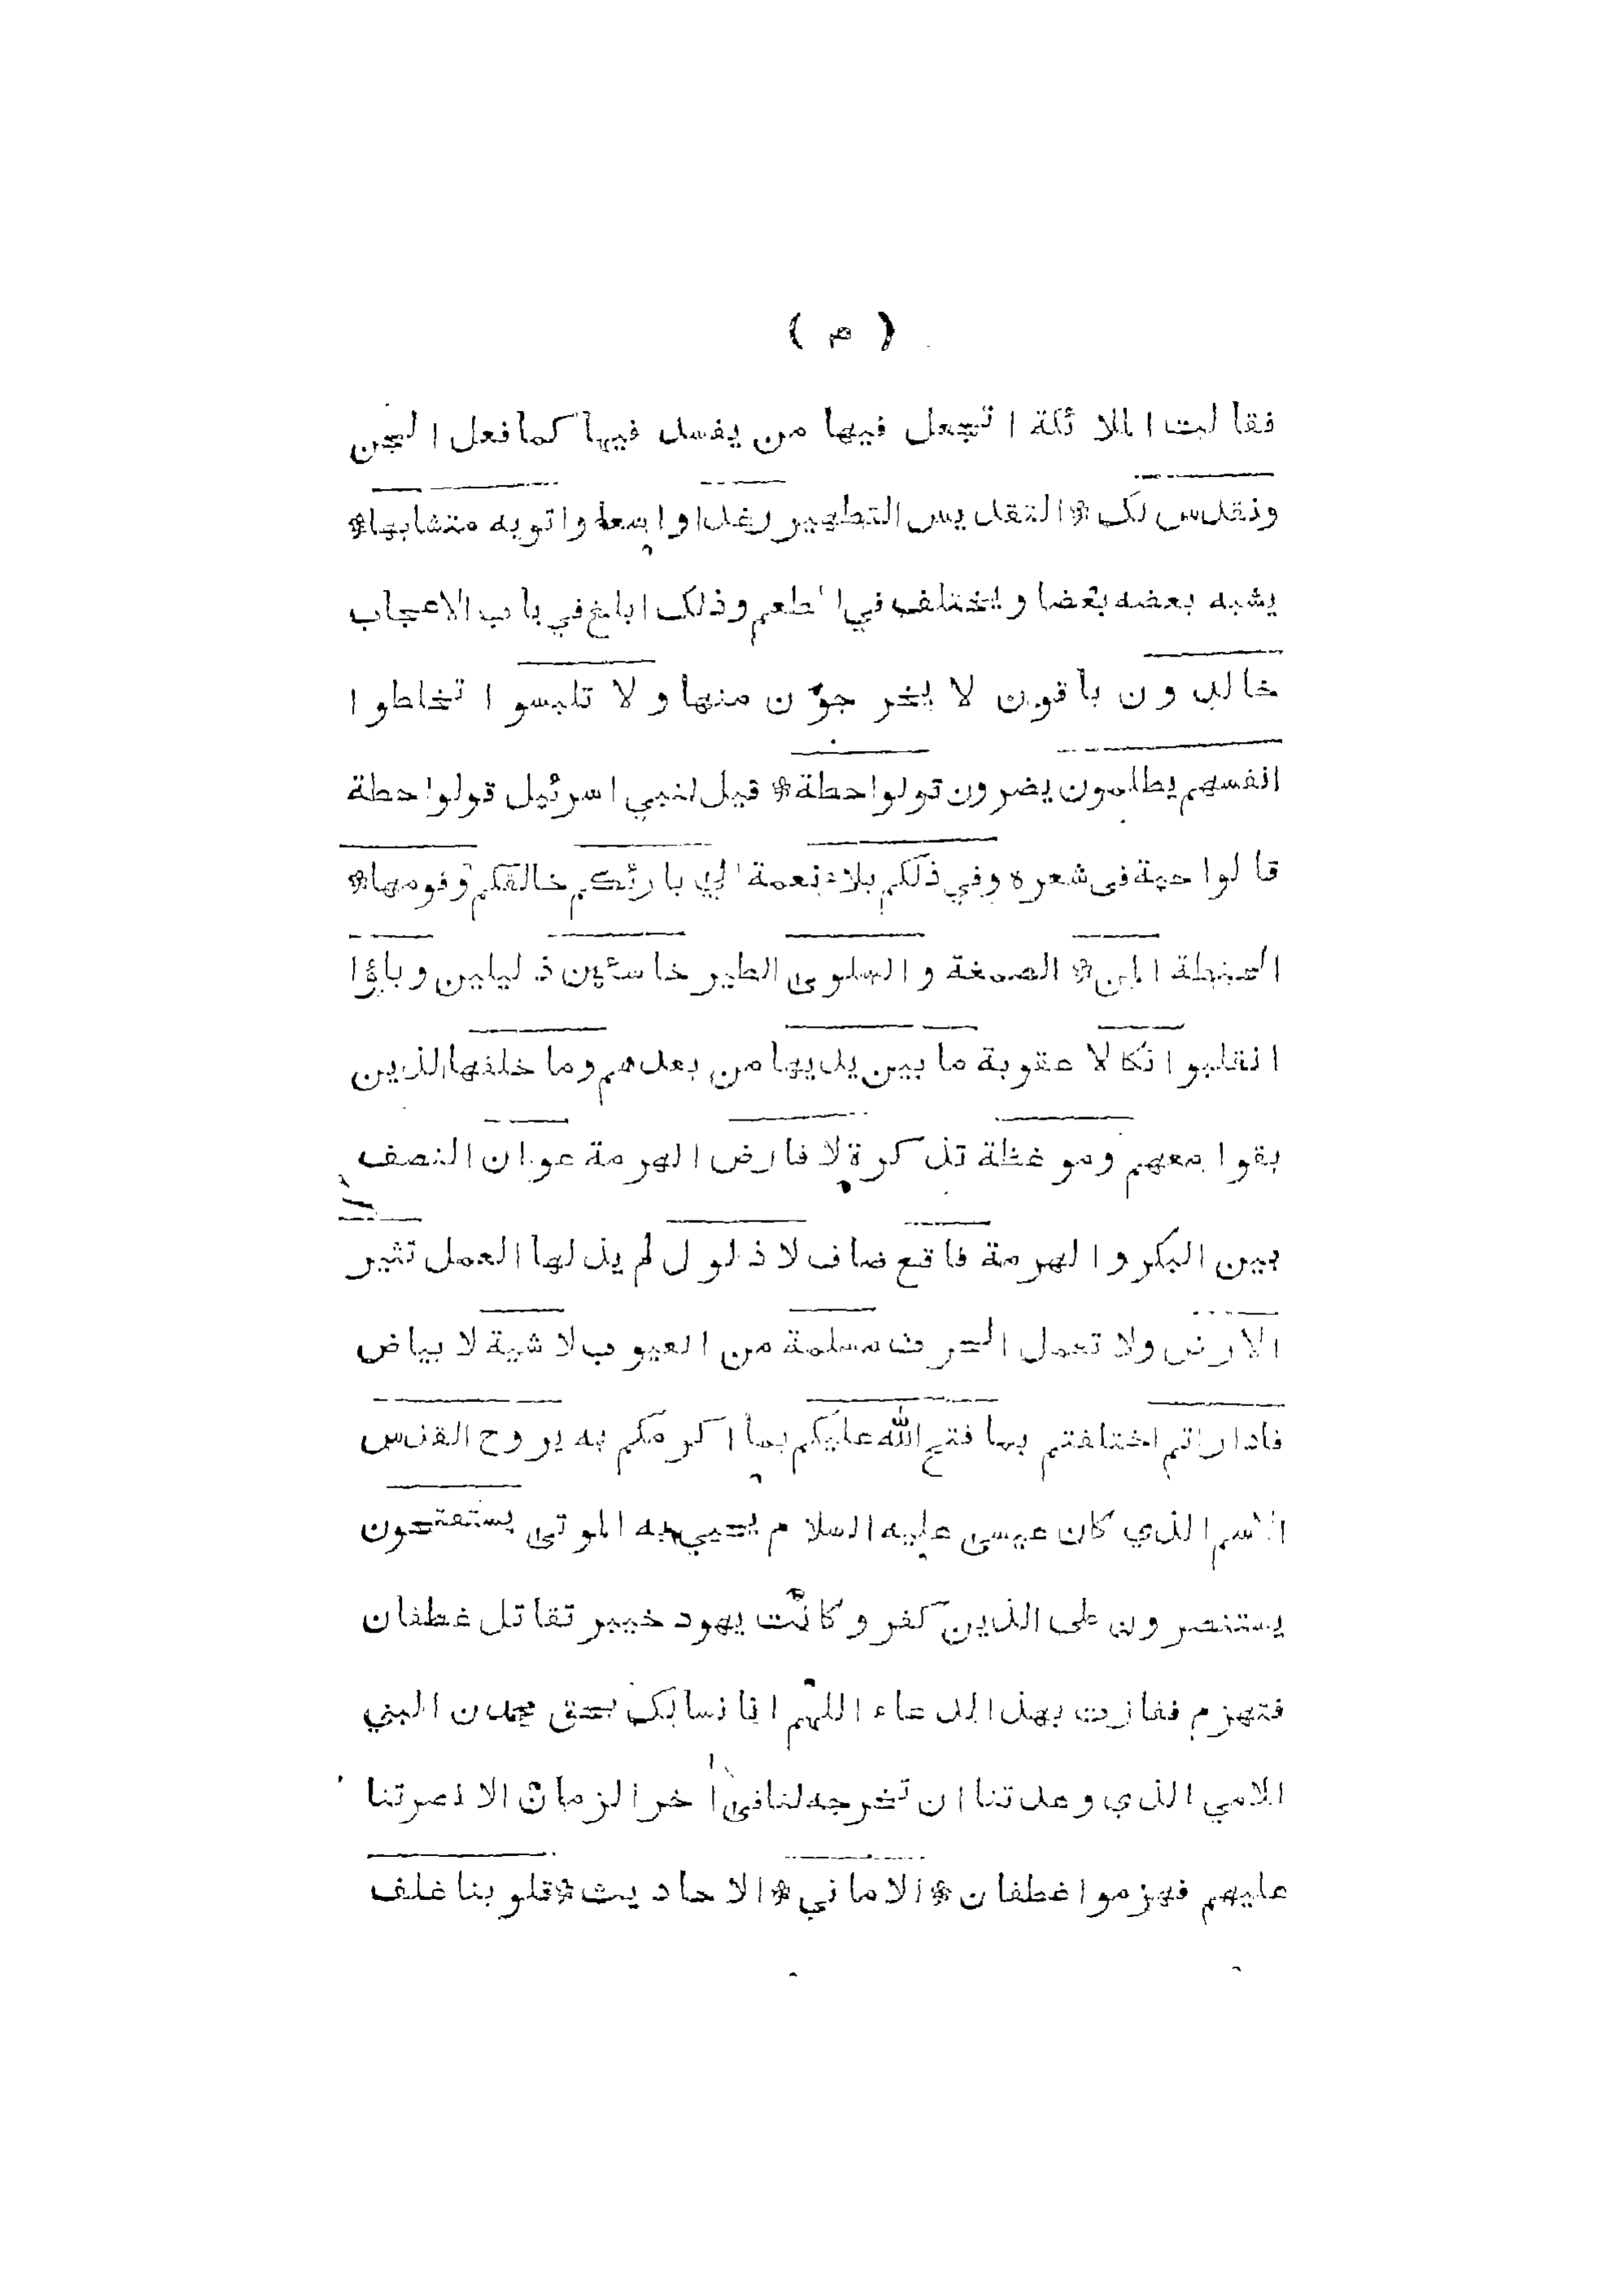 ( م )
فقالت الملائكة اتجعل فيها من يفسد فيها كما فعل الجن
ونقدس لك * التقديس التطهير رغدا واسعا واتوبه متشابها *
يشبه بعضه بعضا ويختلف في الطعم وذلك ابلغ في باب الاعجاب
خالدون باقون لا يخرجون منها ولا تلبسوا تخلطوا
انفسهم يظلمون يضرون قولوا حطة * قيل لنبي اسرئيل قولوا حطة
قالوا حبة في شعره وفي ذلكم بلاء نعمة الي بارئكم خالقكم وفومها *
الحنطة المن * الصمغة والسلوى الطير خاسئين ذليلين وباؤا
انقلبوا نكالا عقوبة ما بين يديها من بعدهم وما خلفها الذين
بقوا معهم وموعظة تذكرة لا فارض الهرمة عوان النصف
بين البكر والهرمة فاقع صاف لا ذلول لم يذلها العمل تثير
الارض ولا تعمل الحرث مسلمة من العيوب لا شية لا بياض
فاداراتم اختلفتم بما فتح الله عليكم بما اكرمكم به بروح القدس
الاسم الذي كان عيسى عليه السلام يحيي به الموتى يستفتحون
يستنصرون على الذين كفر وكانت يهود خيبر تقاتل غطفان
فتهزم ففازت بهذا الدعاء اللهم انا نسالك بحق محمدن البني
الامي الذي وعدتنا ان تخرجه لنا فى اخر الزمان الا نصرتنا
عليهم فهزموا غطفان * الاماني * الاحاديث * قلوبنا غلف